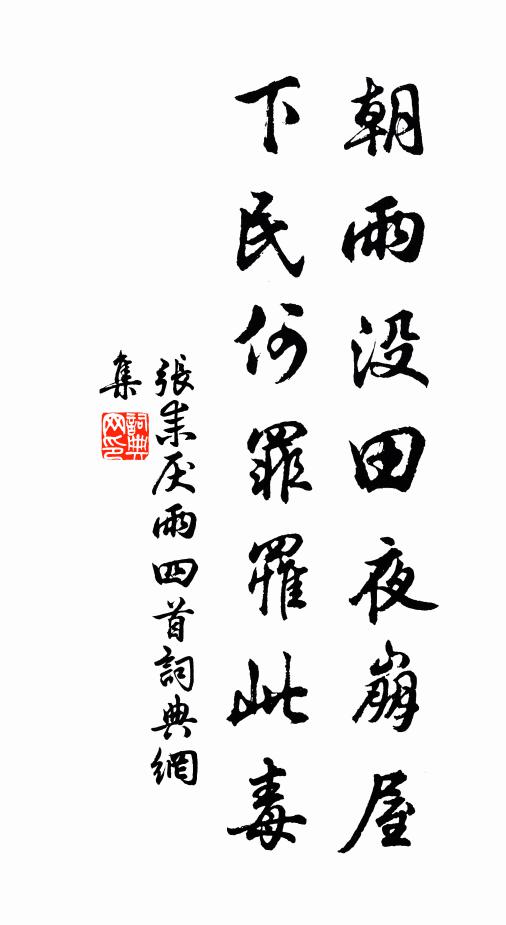 朝雨没田夜崩屋
下民何罪罹此毒
張耒厌雨四首詞典網
集
詞典網印